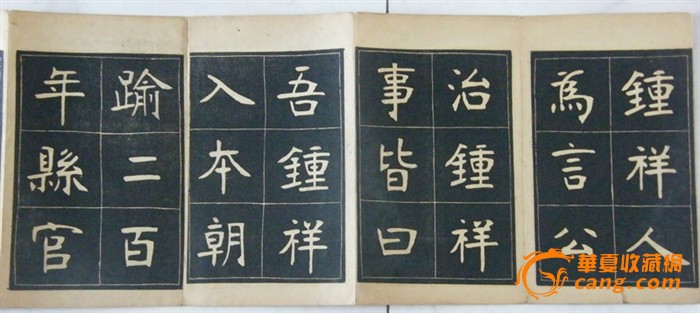 鍾祥人
為言公
治鍾祥
事皆曰
吾鍾祥
入本朝
踰二百
年縣官
華夏收藏網
cang.com